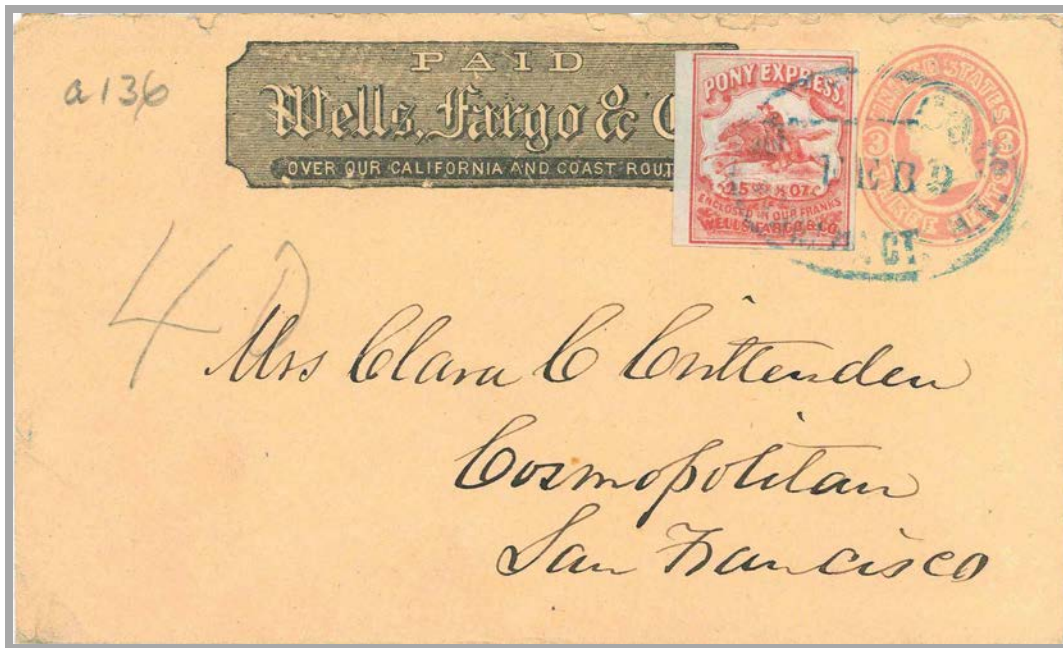 a136
PAID
Wells, Fargo & C
OVER OUR CALIFORNIA AND COAST ROUT
PONY EXPRESS.
25
OZ.
ENCLOSED IN OUR FRANKS
WELLS, FARGO & CO.
UNITED STATES
3 3
THREE CENTS
FEB 9
40
Mrs Clara C Crittenden
Cosmopolitan
San Francisco